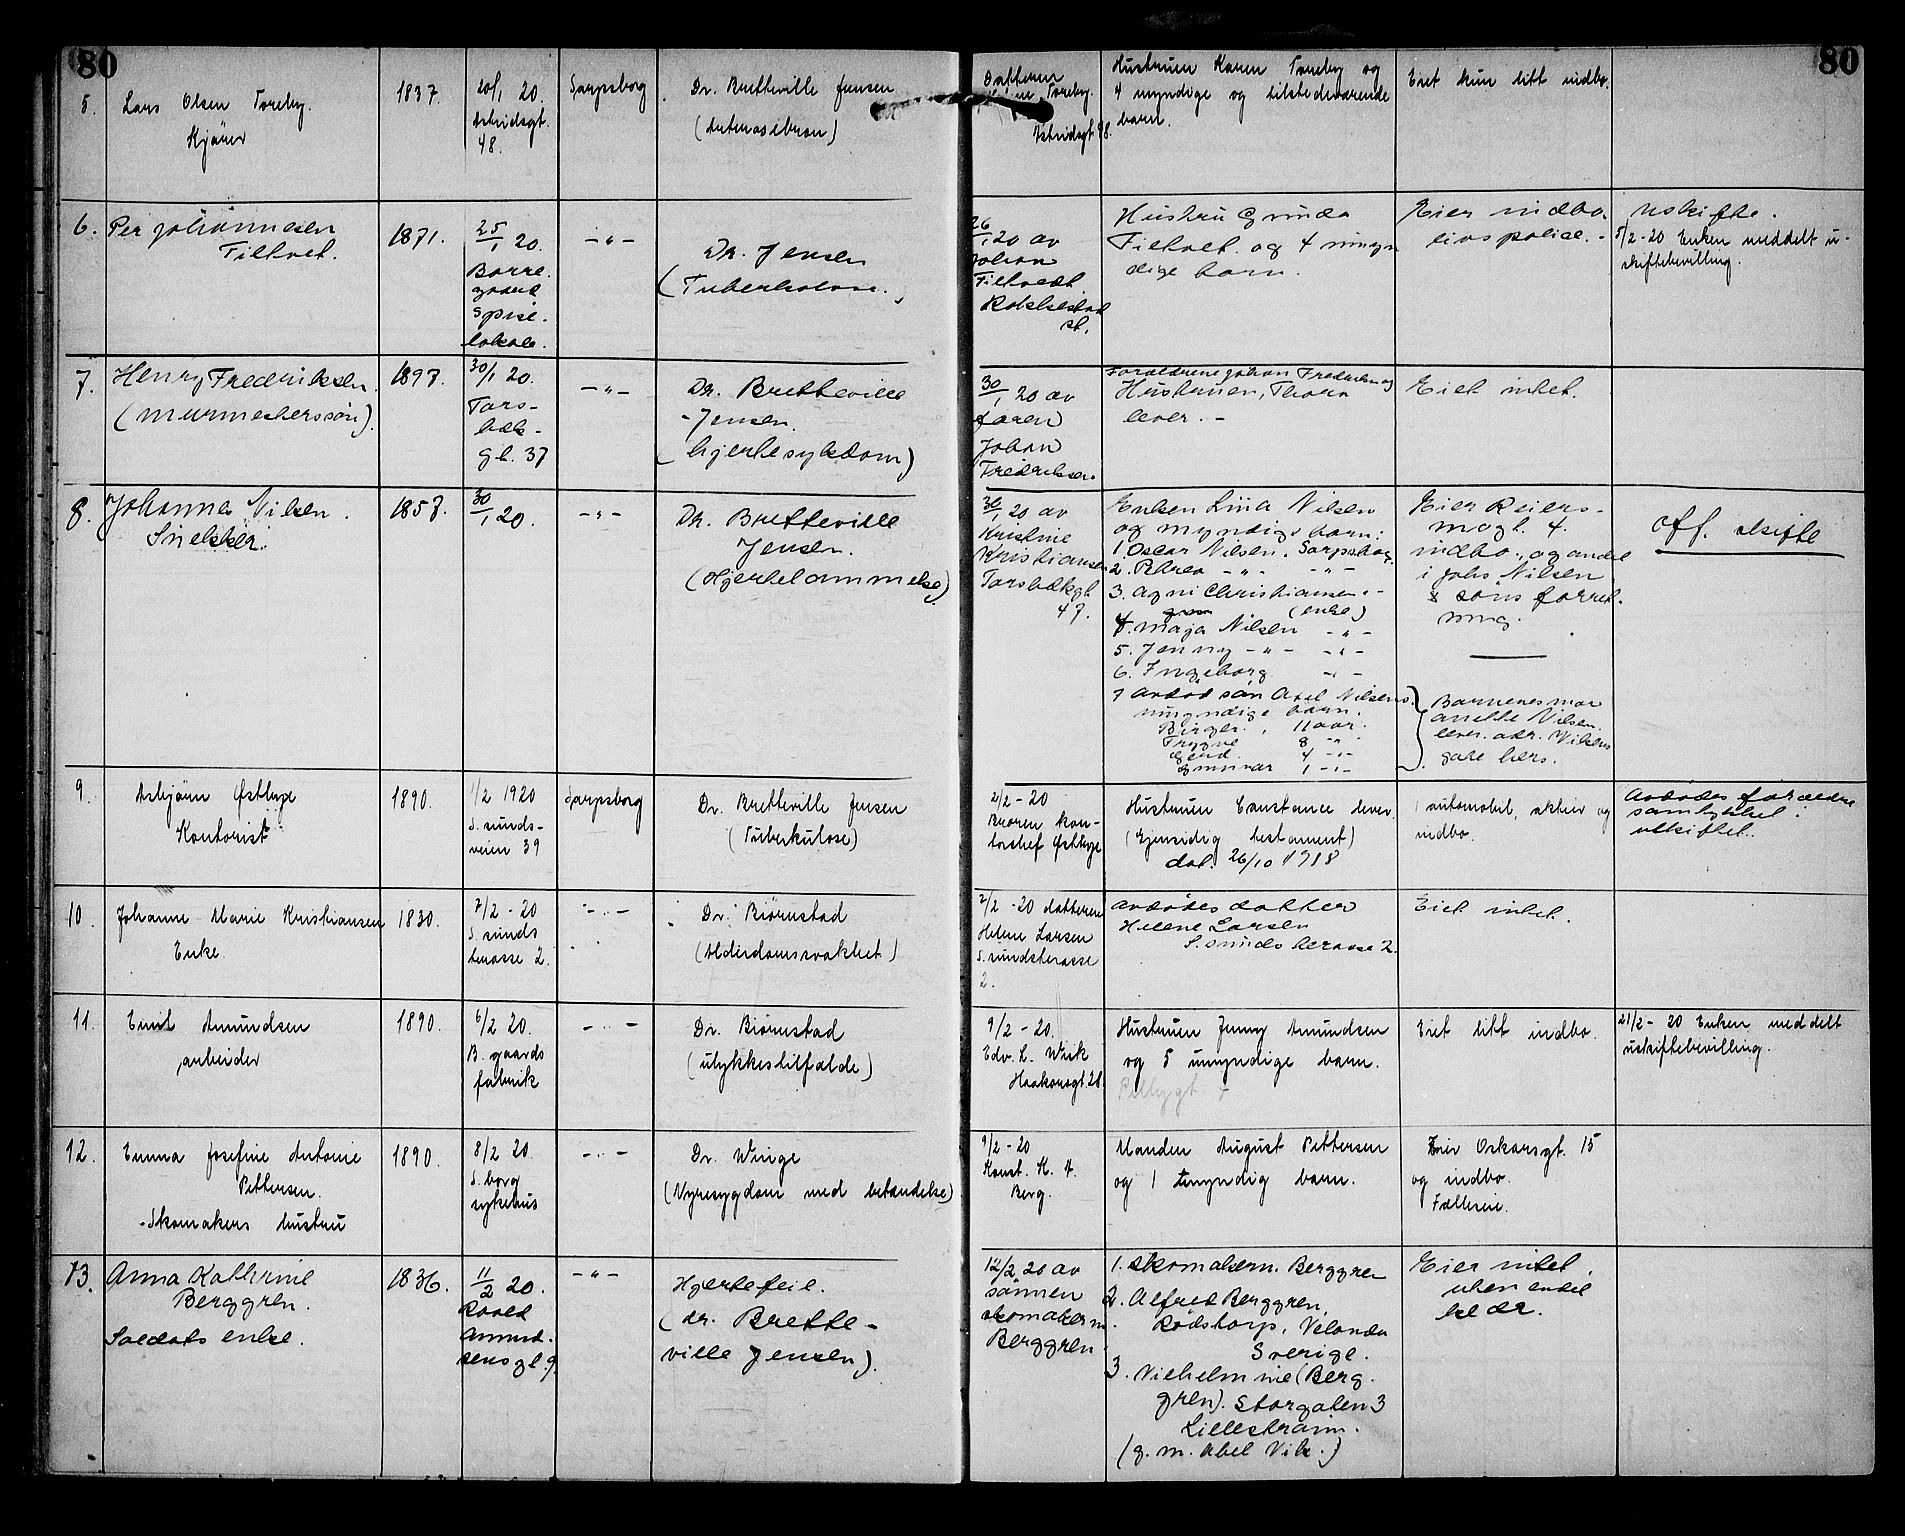 80
80
5.
Lars Olsen Toreby.
Kjører
1837.
20/1 20.
Astridsgt.
48.
Sarpsborg
Dr. Bretteville Jensen
Datteren
Toreby.
Astridsgt 48.
Hustruen Karen Toreby og
4 myndige og tilstedeværende
barn.
Eiet kun litt indbo.
6.
Per Johannesen
Tiltvet.
1871.
25/1 20.
Borre.
gaard
spise.
lokale.
-"-
Dr. Jensen
(Tuberkulose.)
26/1 20 av
Johan
Tiltvedt
Rakkestad
st.
Hustru Gunda
Tiltvet og 4 umyn
dige barn.
Eier indbo.
livspolice. -
Uskifte.
5/2-20 Enken meddelt u-
skiftebevilling.
7.
Henry Fredriksen.
(murmesterssøn).
1897.
30/1 20.
Tors-
bæk-
gt. 37
-"-
Dr. Bretteville
-Jensen.
(hjertesykdom)
30/1 20 av
faren
Johan
Fredriksen
Forældrene Johan Fredriksen og
Hustruen, Thora
lever. -
Eiet intet.
8.
Johannes Nilsen.
Snekker.
1857.
30/1 20.
-"-
Dr. Bretteville
Jensen.
(Hjertelammelse)
30/1 20 av
Kristine
Kristiansen
Torsbækgt
47.
Enken Lina Nilsen
og myndige barn:
1. Oscar Nilsen. Sarpsborg.
2. Petrea -"- -"-
3. Agni Christiansen -"-
(enke)
4. Maja Nilsen -"-
5. Jenny -"- -"-
6. Ingeborg -"-
7 Avdød søn Axel Nilsens
umyndige barn.
Birger., 11 aar.
Trygve 8 -"-
Gerd. 4 -"-
Gunnar 1 -"-
Eier Reiers-
mogt. 4.
indbo, og andel
i Johs. Nilsen
& søns forret-
ning.
Barnenes mor
Anette Nilsen
lever. adr. Nilsens
gate hers.
off. skifte
9.
Asbjørn Østbye
Kontorist
1890.
1/2 1920
S.sunds-
veien 39
Sarpsborg
Dr. Bretteville Jensen
(Tuberkulose)
2/2-20
Broren Kon-
torchef Østbye
Hustruen Constance lever.
(Gjensidig testament)
dat. 26/10 1918
1 automobil, aktier og
indbo.
Avdødes forældre
samtykket.
utskiftet.
10.
Johanne Marie Kristiansen
Enke
1830.
2/2-20
S.sunds
terasse 2.
-"-
Dr. Biørnstad
(Alderdomssvakhet)
2/2-20 datteren
Helene Larsen
S.sundsterasse
2.
Avdødes datter
Helene Larsen
S.sunds terasse 2.
Eiet intet.
11.
Emil Amundsen
arbeider
1890.
6/2 20.
B.gaards
fabrik
-"-
Dr. Biørnstad
(ulykkestilfælde)
9/2-20.
Edv. L. Wiik
Haakonsgt. 28.
Hustruen Jenny Amundsen
og 5 umyndige barn.
Eiet litt indbo.
21/2-20 Enken meddelt
uskiftebevilling.
12.
Emma Josefine Antonie
Pettersen.
Skomakers hustru
1890.
8/2 20.
S.borg
sykehus
-"-
Dr. Winge
(Nyresygdom med betændelse)
9/2-20
Konst. K. A.
Berg.
Manden August Pettersen
og 1 umyndig barn.
Eier Oskarsgt. 15
og indbo.
Fælleseie.
13.
Anna Kathrine
Berggren.
Soldats enke.
1836.
11/2 20.
Roald
Amund-
sens gt. 9.
-"-
Hjertefeil.
(dr. Brette-
ville Jensen).
12/2 20 av
sønnen
skomakerm.
Berggren.
1. Skomakerm. Berggren
2. Alfred Berggren,
Rødstorp, Velanda
Sverige.
3. Vilhelmine (Berg-
gren). Storgaten 3
Lillestrøm.
(g. m. Abel Vik.)
Eier intet.
uten endel
klær.